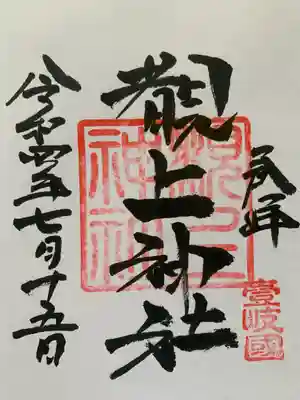 奉拜
壹岐國
覩上神社
覩上
神社
令和四年七月十五日